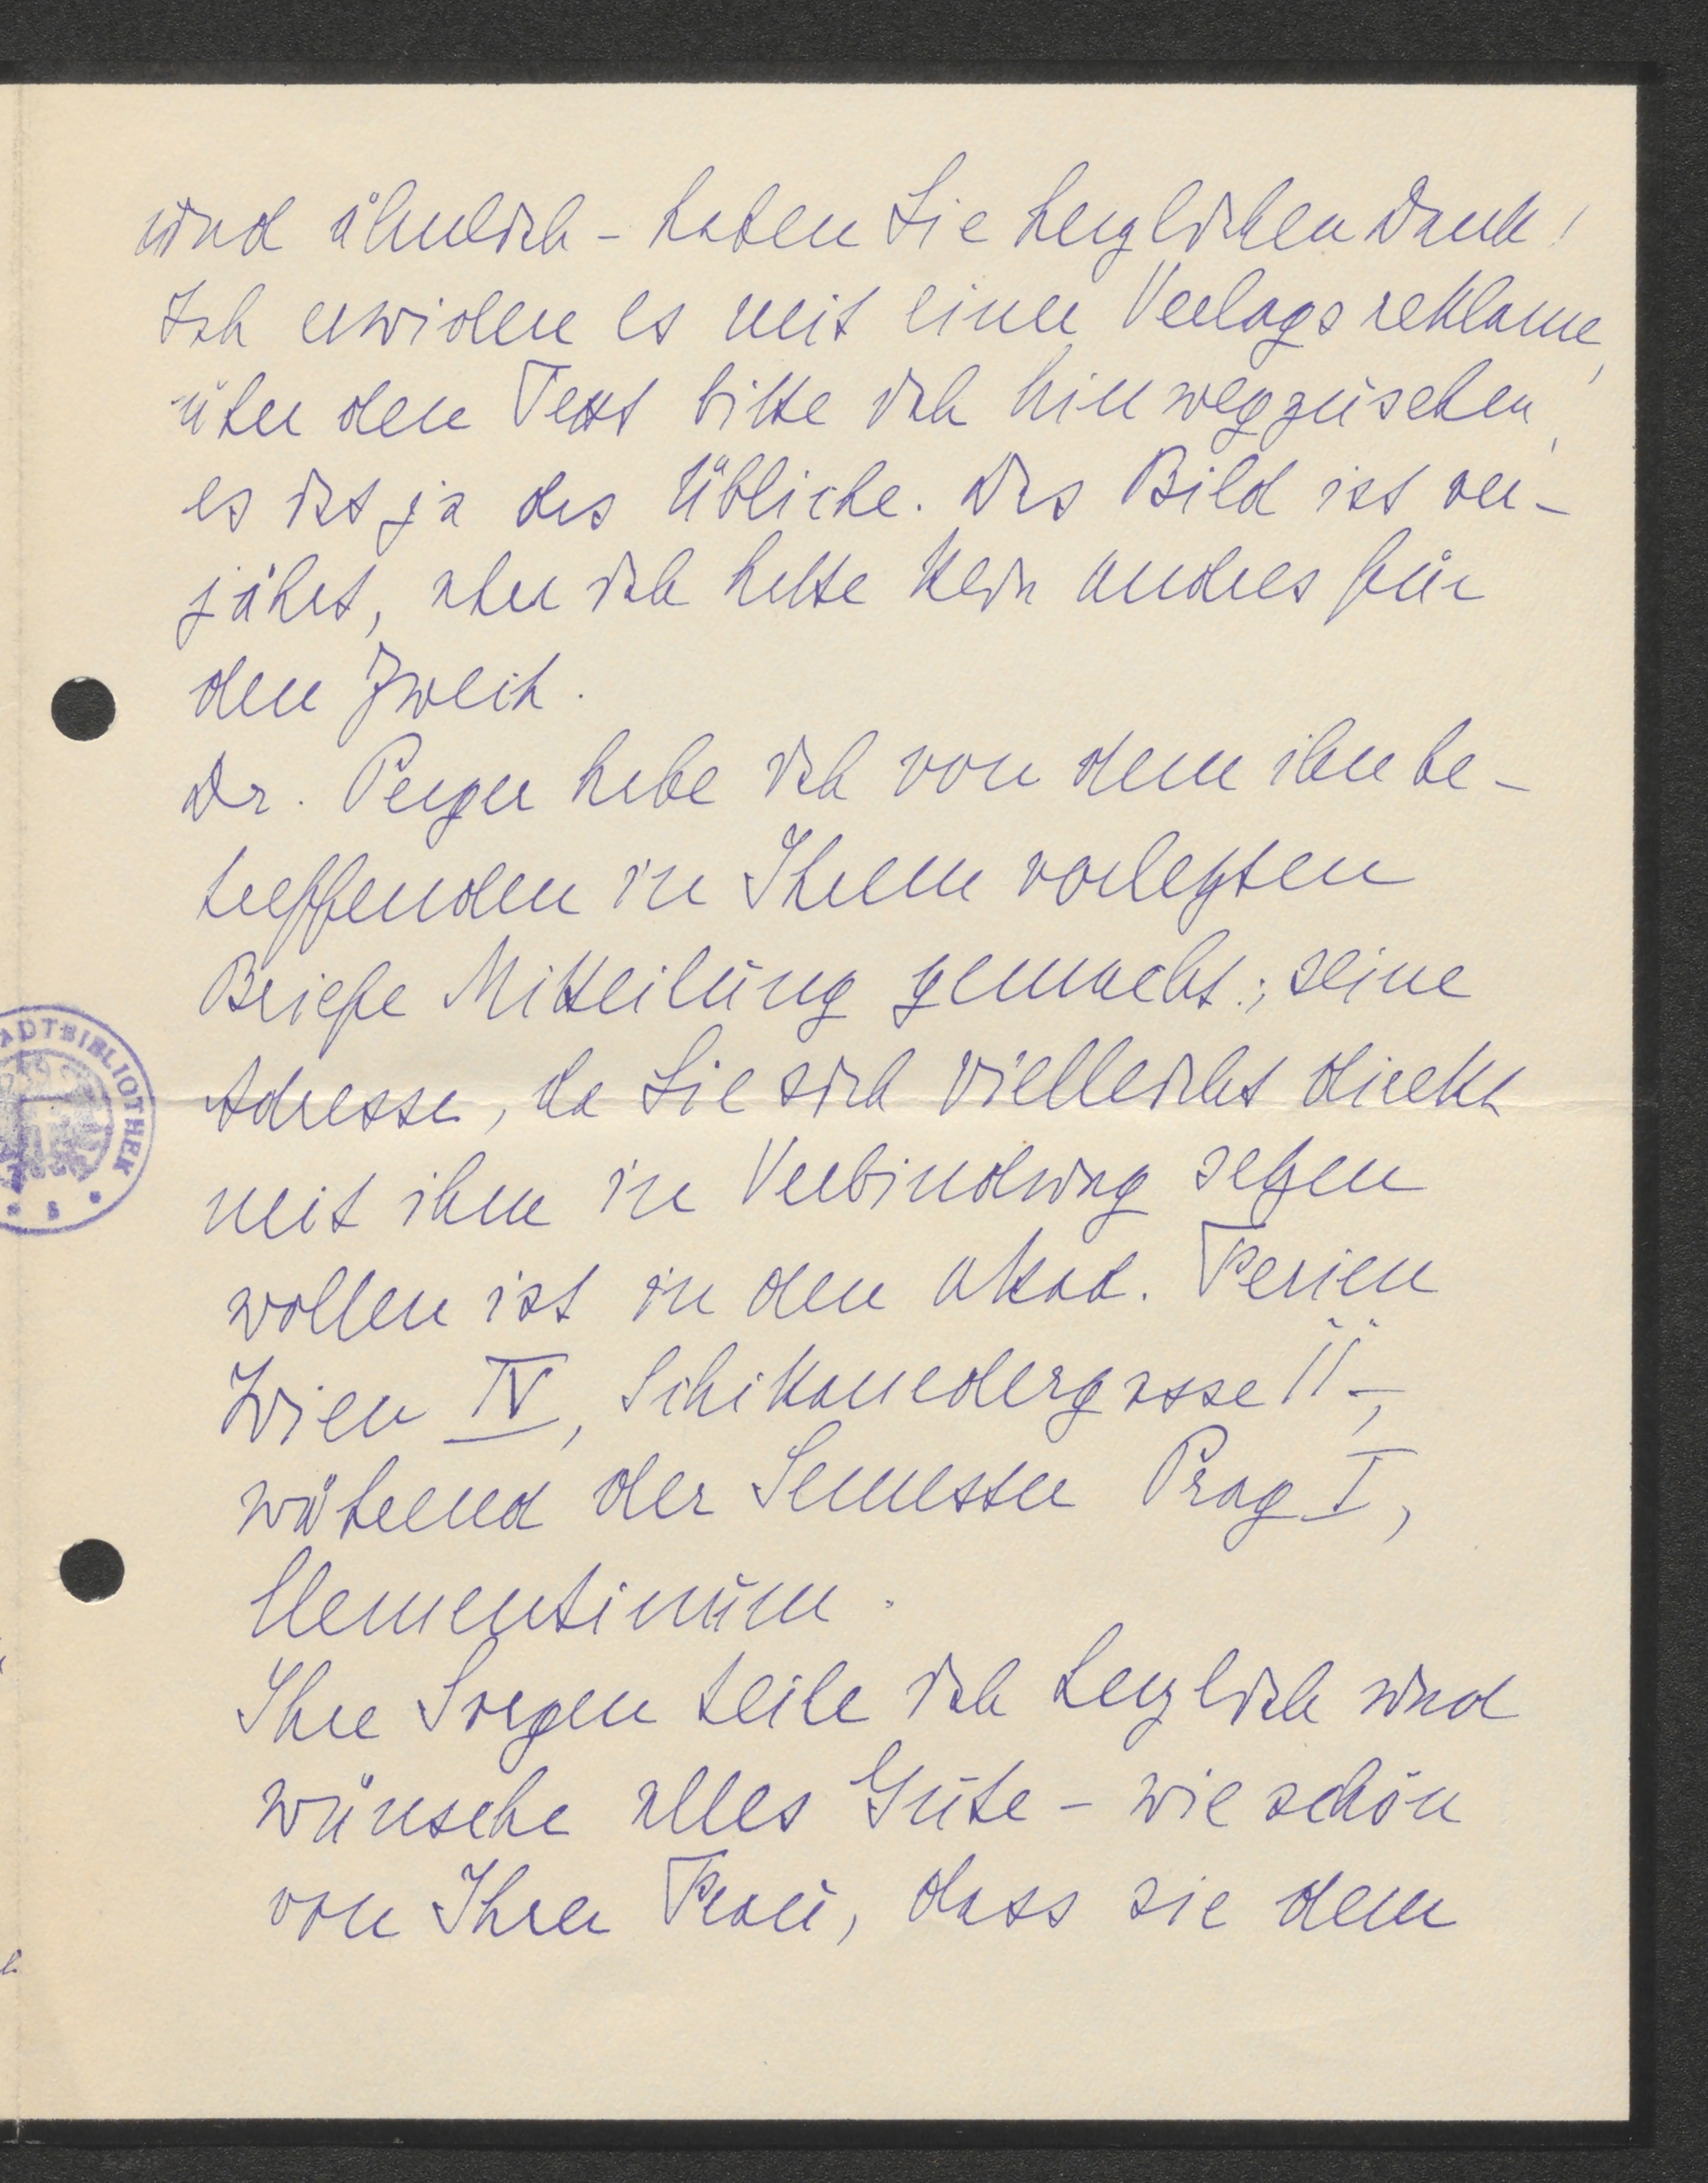 und ähnlich – haben Sie herzlichen Dank!
Ich erwidere es mit einer Verlagsreklame,
über den Text bitte ich hinwegzusehen,
es ist ja das Übliche. Das Bild ist ver-
jährt, aber ich hatte kein andres für
den Zweck.
Dr. Perger habe ich von dem ihn be-
treffenden in Ihrem vorletzten
Briefe Mitteilung gemacht; seine
Adresse, da Sie sich vielleicht direkt
mit ihm in Verbindung setzen
wollen ist in den akad. Ferien
Wien IV, Schikanedergasse 11,
während der Semester Prag I,
Clementinum.
Ihre Sorgen teile ich herzlich und
wünsche alles Gute – wie schön
von Ihrer Frau, dass sie dem
ADTBIBLIOTHEK